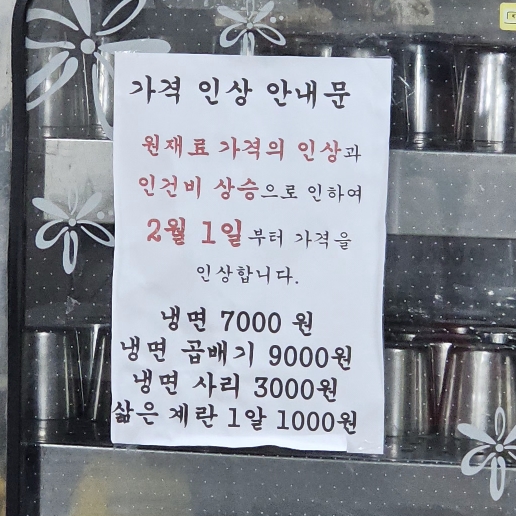 가격 인상 안내문
원재료 가격의 인상과
인건비 상승으로 인하여
2월 1일부터 가격을
인상합니다.
냉면 7000 원
냉면 곱배기 9000원
냉면 사리 3000원
삶은 계란 1알 1000원